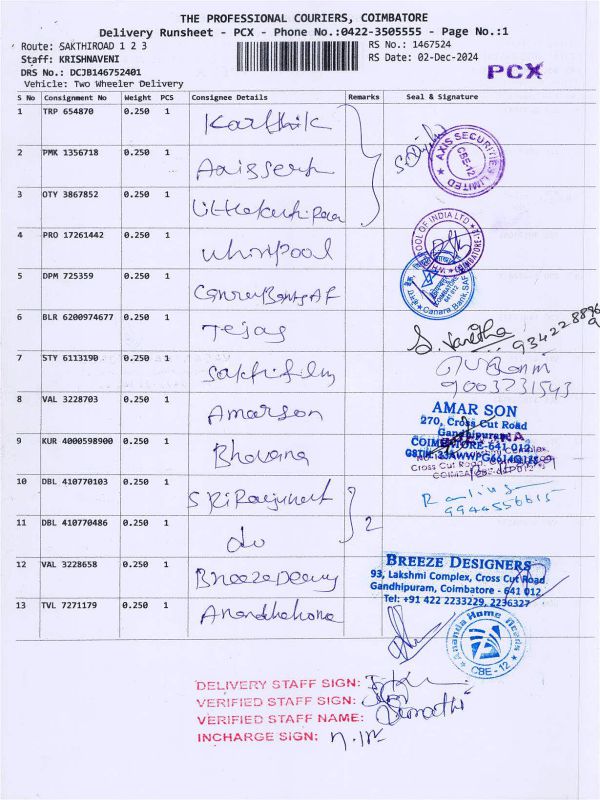 THE PROFESSIONAL COURIERS, COIMBATORE
Delivery Runsheet - PCX - Phone No.:0422-3505555 - Page No.:1
Route: SAKTHIROAD 1 2 3
RS No.: 1467524
Staff: KRISHNAVENI
RS Date: 02-Dec-2024
DRS No.: DCJB146752401
PCX
Vehicle: Two Wheeler Delivery
S No Consignment No Weight PCS Consignee Details Remarks Seal & Signature
1 TRP 654870 0.250 1 Karthik
2 PMK 1356718 0.250 1
AXIS SECURITIES LIMITED CBE-12
3 OTY 3867852 0.250 1
4 PRO 17261442 0.250 1 Whirlpool
POOL OF INDIA LTD COIMBATORE
5 DPM 725359 0.250 1
Canara Bank
6 BLR 6200974677 0.250 1 Tejas
7 STY 6113190 0.250 1 Sakthifilm
9003731543
8 VAL 3228703 0.250 1 Amarson
AMAR SON
270, Cross Cut Road
Gandhipuram
COIMBATORE-641 012.
9 KUR 4000598900 0.250 1 Bhavana
Cross Cut Road
10 DBL 410770103 0.250 1
9944556615
11 DBL 410770486 0.250 1 do 2
12 VAL 3228658 0.250 1
BREEZE DESIGNERS
93, Lakshmi Complex, Cross Cut Road
Gandhipuram, Coimbatore - 641 012.
Tel: +91 422 2233229, 2236327
13 TVL 7271179 0.250 1
Ananda Home Needs CBE-12
DELIVERY STAFF SIGN:
VERIFIED STAFF SIGN:
VERIFIED STAFF NAME: Sumathi
INCHARGE SIGN: